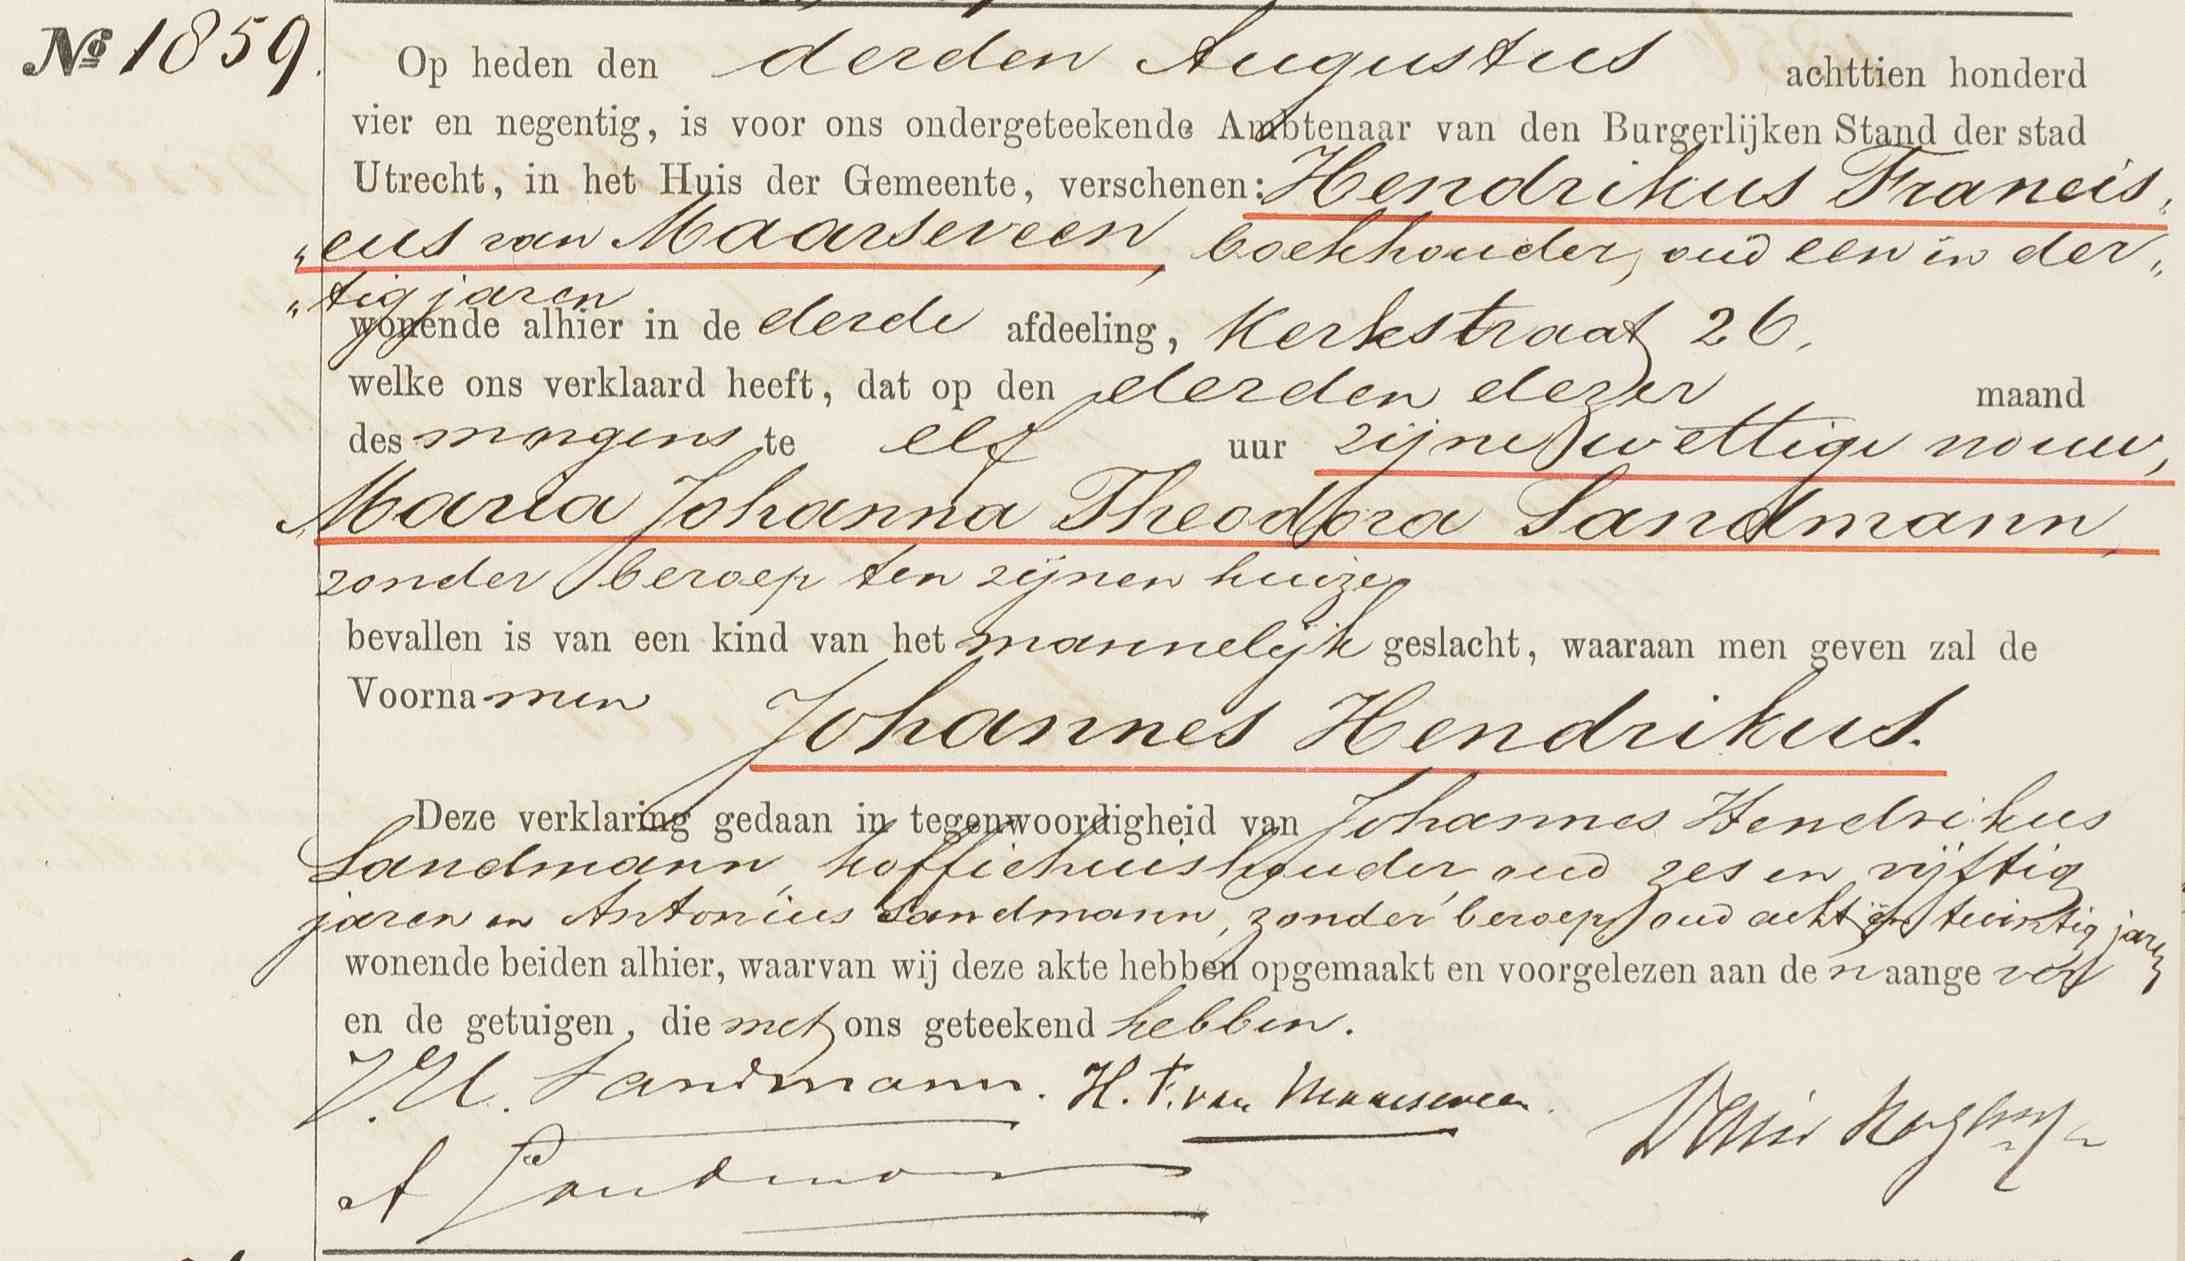 № 1859.
Op heden den derden Augustus achttien honderd
vier en negentig, is voor ons ondergeteekende Ambtenaar van den Burgerlijken Stand der stad
Utrecht, in het Huis der Gemeente, verschenen: Hendrikus Francis„
„cus van Maarseveen, boekhouder, oud een en der„
„tig jaren
wonende alhier in de derde afdeeling, Kerkstraat 26,
welke ons verklaard heeft, dat op den derden dezer maand
des morgens te elf uur zijne wettige vrouw,
Maria Johanna Theodora Sandmann,
zonder beroep ten zijnen huize
bevallen is van een kind van het mannelijk geslacht, waaraan men geven zal de
Voornamen Johannes Hendrikus.
Deze verklaring gedaan in tegenwoordigheid van Johannes Hendrikus
Sandmann, koffiehuishouder, oud zes en vijftig
jaren en Antonius Sandmann, zonder beroep, oud acht en twintig jaren
wonende beiden alhier, waarvan wij deze akte hebben opgemaakt en voorgelezen aan den aangever
en de getuigen, die met ons geteekend hebben.
J. H. Sandmann. H. F. van Maarseveen.
A Sandmann